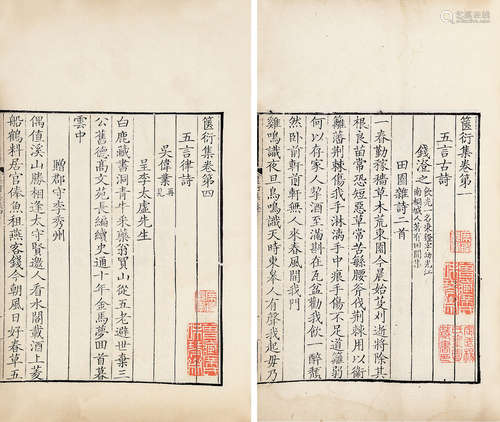 篋衍集卷第一
五言古詩
錢澄之 飲光一名秉鐙字幼光江南桐城人著有田間集
田園雜詩二首
一春勤稼穡草木荒東園今晨始芟刈逝將除其
根良苗常恐短惡草常苦緐腰斧伐荆棘用以衛
籬藩荆棘傷我手淋漓手中痕手傷不足道籬弱
何以存家人挈酒至滿斟在瓦盆勸我飲一醉頹
然卧前軒前軒無人來春風開我門
雞鳴識夜旦鳥鳴識天時東皋人有聲我起毋乃
篋衍集卷第四
五言律詩
吳偉業 再見
呈李太虛先生
白鹿藏書洞青牛采藥翁買山從五老避世棄三
公舊德高文苑長編續史通十年金馬夢回首暮
雲中
贈郡守李秀州
偶值溪山勝相逢太守賢邀人看水閣載酒上菱
船鶴料居官儉魚租燕客錢今朝風日好春草五